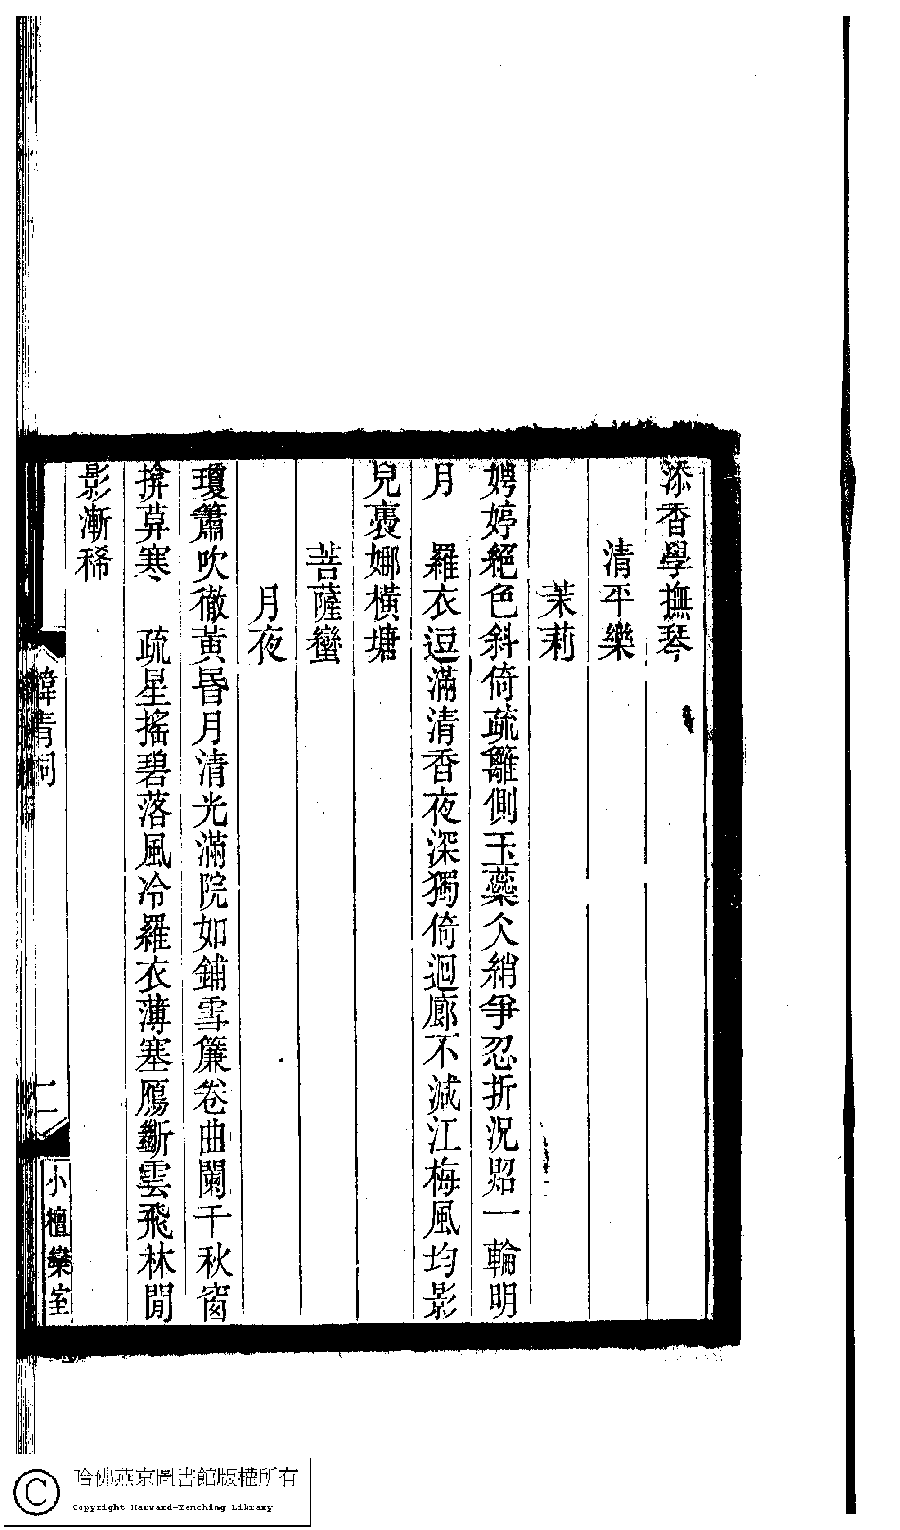 添香學撫琴
清平樂
茉莉
娉婷絕色斜倚疏籬側玉蘂仌綃爭忍折況照一輪明
月　羅衣逗滿清香夜深獨倚迴廊不減江梅風均影
兒裹娜橫塘
菩薩蠻
月夜
瓊簫吹徹黃昬月清光滿院如鋪雪簾卷曲闌干秋窗
揜莫寒　疏星搖碧落風冷羅衣薄塞鴈斷雲飛林閒
影漸稀
韓青詞
二
小檀欒室
哈佛燕京圖書館版權所有
Copyright Harvard-Yenching Library